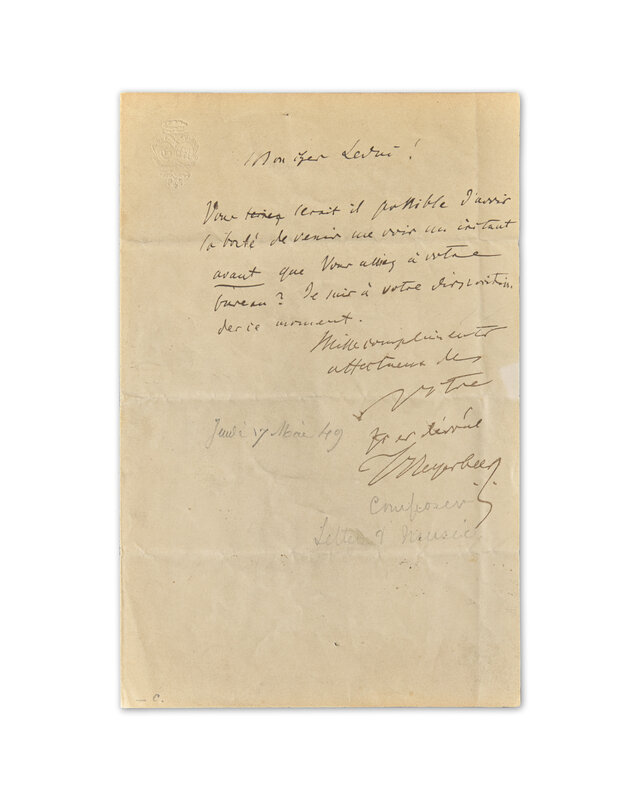 Mon cher Leduc!
Vous serait il possible d'avoir
la bonté de venir me voir un instant
avant que Vous alliez à votre
bureau? Je suis à votre disposition
dès ce moment.
Mille compliments
affectueux de
Votre
très dévoué
Meyerbeer
Jeudi 17 Mai 49
Composer
Letter Music